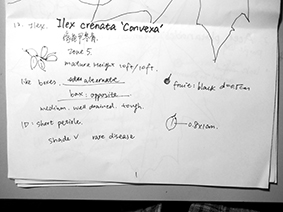 17. Ilex. Ilex crenata 'Convexa'
Zone 5.
mature height 10ft/10ft.
like boxes: alternate
box: opposite
fruit: black d=0.8cm
medium. well drained. tough.
ID: short petiole.
0.8x1cm.
shade V rare disease
1